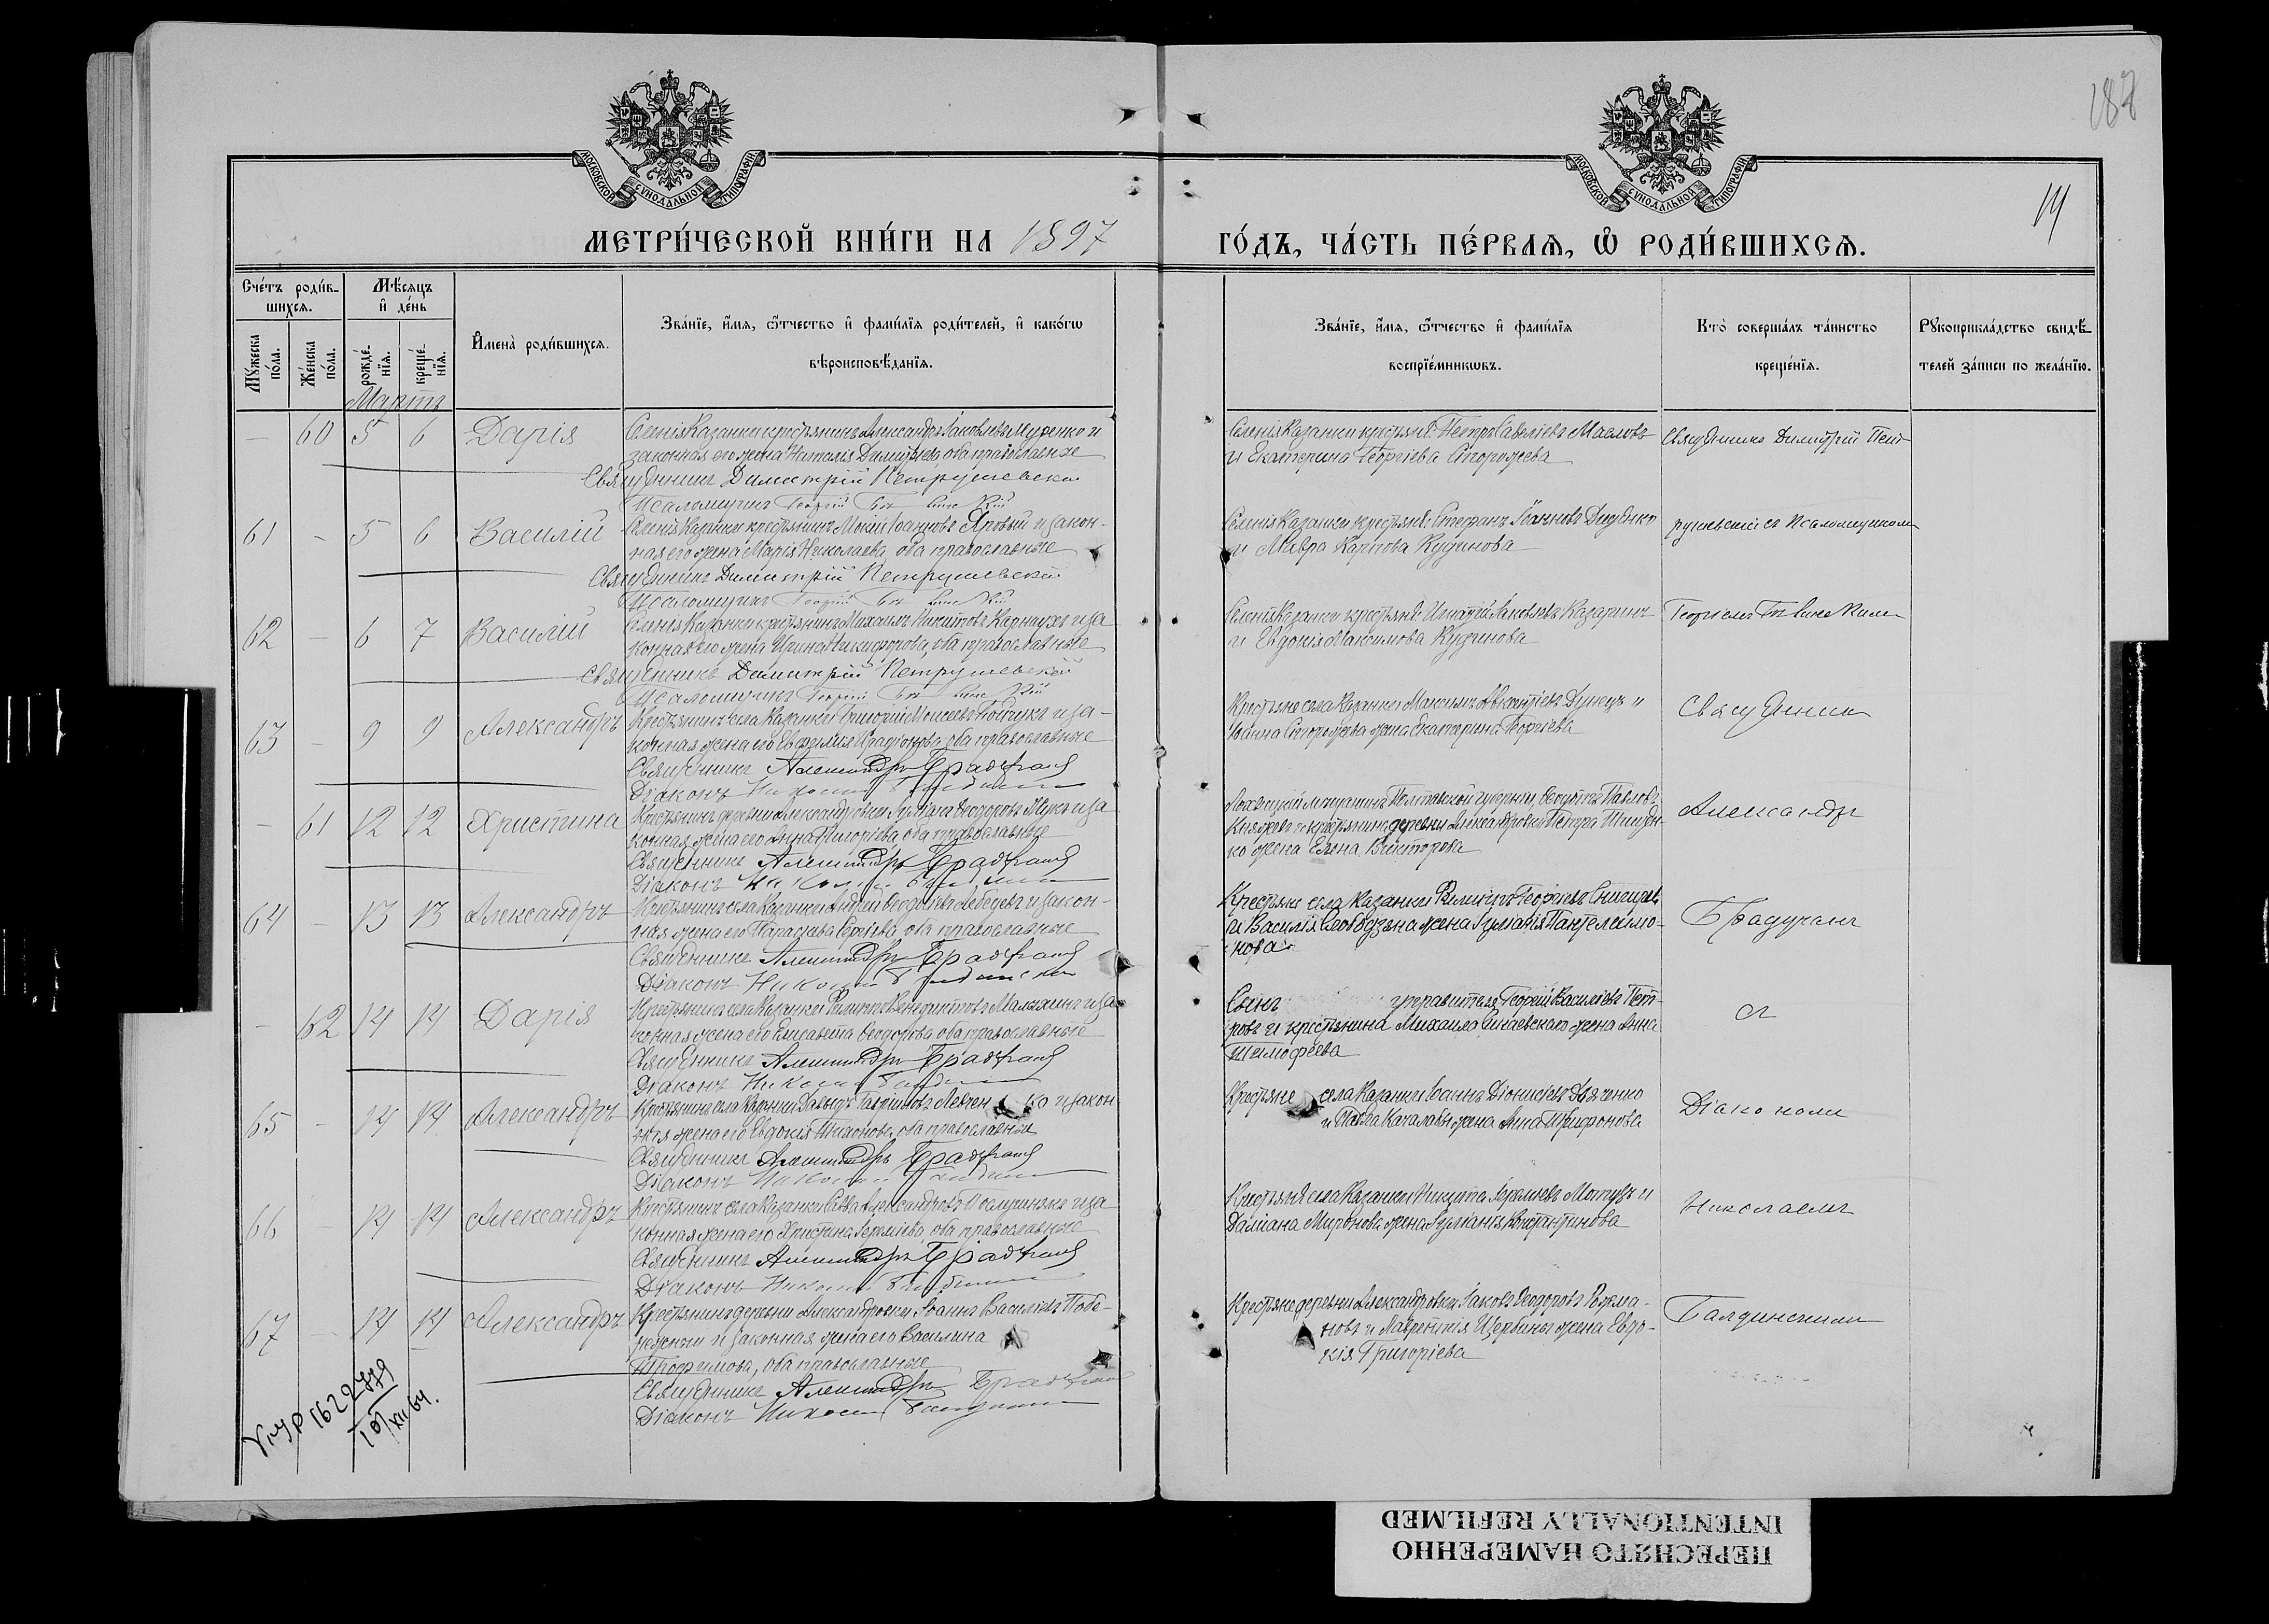 188
МОСКОВСКОЙ СѴНОДАЛЬНОЙ ТИПОГРАФІИ
МОСКОВСКОЙ СѴНОДАЛЬНОЙ ТИПОГРАФІИ
14
МЕТРИ́ЧЕСКОЙ КНИ́ГИ НА 1897
ГО́ДЪ, ЧА́СТЬ ПЕ́РВАѦ, Ѡ҆ РОДИ́ВШИХСѦ.
Сче́тъ роди́в-
шихсѧ.
Мѣ́сѧцъ
и҆ де́нь
Мꙋ́жеска
по́ла.
Же́нска
по́ла.
рожде́-
нїѧ.
креще́-
нїѧ.
И҆мена̀ роди́вшихсѧ.
Зва́нїе, и҆́мѧ, ѻ҆́тчество и҆ фами́лїѧ роди́телей, и҆ како́гѡ
вѣроисповѣ́данїѧ.
Зва́нїе, и҆́мѧ, ѻ҆́тчество и҆ фами́лїѧ
воспрїе́мникѡвъ.
Кто̀ соверша́лъ та́инство
креще́нїѧ.
Рꙋкоприкла́дство свидѣ́-
телей за́писи по жела́нїю.
Мартъ
— 60 5 6 Дарія
Селенія Казанки крестьянинъ Александръ Іаковлевъ Муренко и
законная его жена Наталія Димитріева, оба православные
Священникъ Димитрій Петрушевскій
Псаломщикъ Георгій
Селенія Казанки крестьяне: Петръ Савеліевъ Масловъ
и Екатерина Георгіева Сторожева
Священникъ Димитрій Пет
61 - 5 6 Василій
Селенія Казанки крестьянинъ Мокій Іоанновъ Яровый и закон-
ная его жена Марія Николаева, оба православные
Священникъ Димитрій Петрушевскій
Псаломщикъ Георгій
Селенія Казанки крестьяне: Стефанъ Іоанновъ Диденко
и Мавра Карпова Кудинова
рушевскій съ Псаломщикомъ
62 - 6 7 Василій
Селенія Казанки крестьянинъ Михаилъ Никитовъ Карнаухъ и за
конная его жена Ирина Никифорова, оба православные
Священникъ Димитрій Петрушевскій
Псаломщикъ Георгій
Селенія Казанки крестьяне: Игнатій Іаковлевъ Казаринъ
и Евдокія Максимова Кудинова
Георгіемъ
63 - 9 9 Александръ
Крестьянинъ села Казанки Григорій Моисеевъ Бойчукъ и за-
конная жена его Евфимія Иродіонова, оба православные
Священникъ Александръ Брадучанъ
Діаконъ Николай
Крестьяне села Казанки Максимъ Авксентіевъ Дунецъ и
Іоанна Сторожева жена Екатерина Георгіева
Священникъ
- 61 12 12 Христина
Крестьянинъ деревни Александровки Ѳеодоровъ Жукъ и за
конная жена его Анна Григоріева, оба православные
Священникъ Александръ Брадучанъ
Діаконъ Николай
Лохвицкій мѣщанинъ Полтавской губерніи, Павловъ
Княжевъ и крестьянина деревни Александровки Петра
ко жена Елена Викторова
Александръ
64 - 13 13 Александръ
Крестьянинъ села Казанки Андрей Ѳеодоровъ Лебедевъ и закон-
ная жена его Параскева Сергіева, оба православные
Священникъ Александръ Брадучанъ
Діаконъ Николай
Крестьяне села Казанки Филиппъ Георгіевъ
и Василія Слободзяна жена Іуліанія Пантелеимо-
нова
Брадучанъ
- 62 14 14 Дарія
Крестьянинъ села Казанки Филиппъ Венедиктовъ Малыхинъ и за
конная жена его Елисавета Ѳеодорова, оба православные
Священникъ Александръ Брадучанъ
Діаконъ Николай
Сынъ управителя Георгій Василіевъ Пет-
ровъ и крестьянина Михаила Синаевскаго жена Анна
Тимофеева
съ
65 - 14 14 Александръ
Крестьянинъ села Казанки Давидъ Гавріиловъ Левченко и закон
ная жена его Евдокія Тихонова, оба православные
Священникъ Александръ Брадучанъ
Діаконъ Николай
Крестьяне села Казанки Іоаннъ Діонисіевъ Дьяченко
и Павла Качалабы жена Анна Трифонова
Діакономъ
66 - 14 14 Александръ
Крестьянинъ села Казанки Савва Александровъ и за
конная жена его Христина, оба православные
Священникъ Александръ Брадучанъ
Діаконъ Николай
Крестьяне села Казанки Никита Мотузъ и
Даміана Миронова жена Іуліанія Константинова
Николаемъ
67 - 14 14 Александръ
Крестьянинъ деревни Александровки Іоаннъ Василіевъ Побе-
режскій и законная жена его Василина
Трофимова, оба православные
Священникъ Александръ Брадучанъ
Діаконъ Николай
Крестьяне деревни Александровки Іаковъ Ѳеодоровъ Рожма-
новъ и Лаврентія Щербины жена Евдо-
кія Григоріева
Балдинскимъ
1622779
10/XII 64.
ПЕРЕСНЯТО НАМЕРЕННО
INTENTIONALLY REFILMED